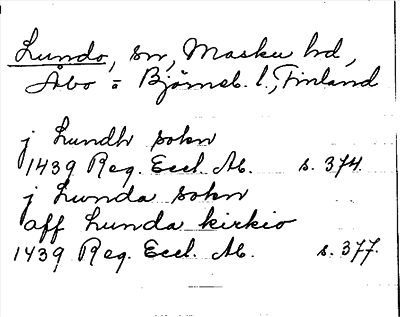 Lundo, sn, Masku hd,
Åbo = Björneb. l., Finland
j Lundh sokn
1439 Reg. Eccl. Ab. s. 374.
j Lunda sokn
aff Lunda kirkio
1439 Reg. Eccl. Ab. s. 377.